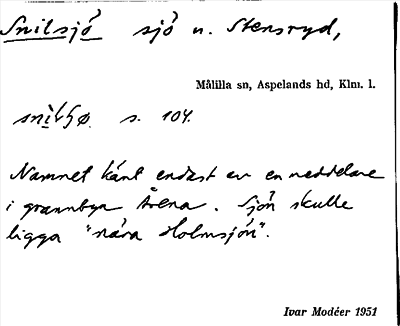 Snilsjö sjö n. Stensryd,
Målilla sn, Aspelands hd, Klm. l.
s. 104.
Namnet känt endast av en meddelare
i grannbyn Årena. Sjön skulle
ligga "nära Holmsjön".
Ivar Modéer 1951